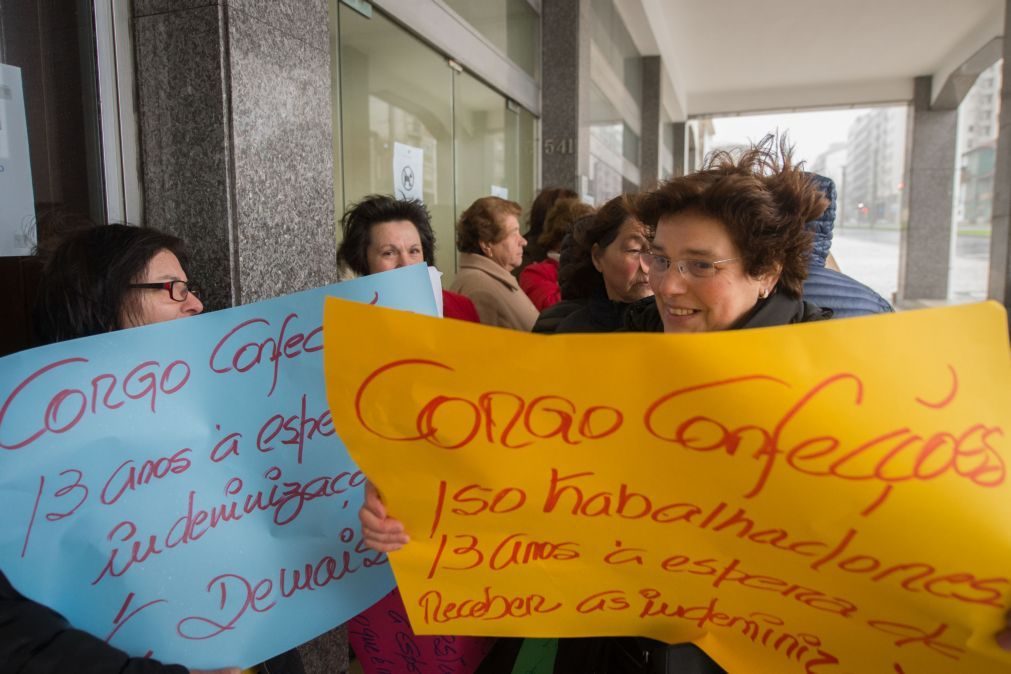 541
Corgo Confec
13 anos à espe
indeminizaçõ
É Demais
Corgo Confecções
150 trabalhadores
13 anos à espera de
receber as indeminiz